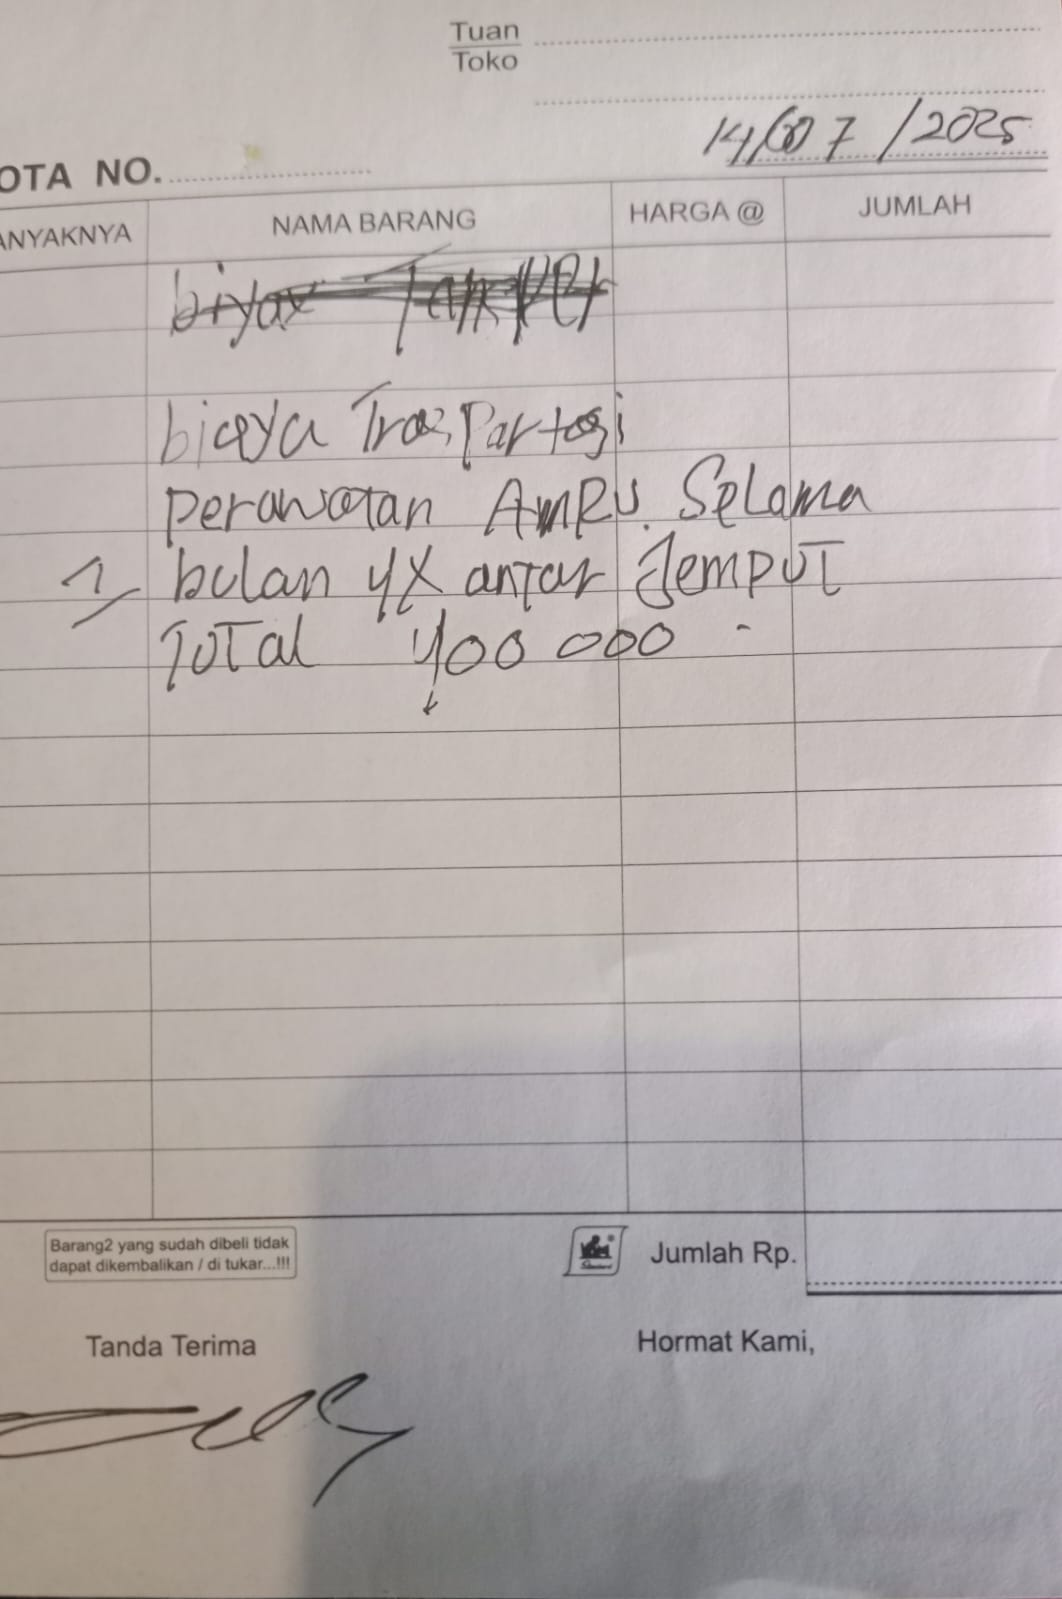 Tuan
Toko
14/07/2025
OTA NO.
ANYAKNYA NAMA BARANG HARGA @ JUMLAH
biaya Traspartasi
perawatan AMRU. Selama
1 bulan 4X antar Jemput
TOTAL 400 000 -
Barang2 yang sudah dibeli tidak
dapat dikembalikan / di tukar...!!!
Jumlah Rp.
Tanda Terima Hormat Kami,